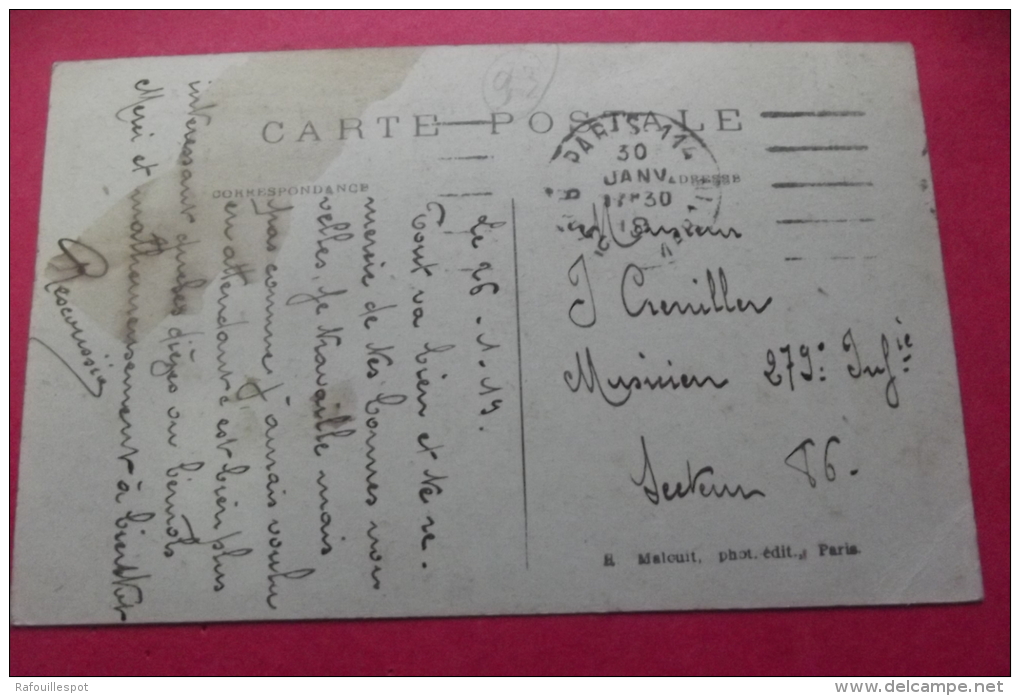 93
CARTE POSTALE
CORRESPONDANCE
ADRESSE
PARIS 114
30
JANV
30
Le 26.1.19.
Tout va bien et te re-
mercie de tes bonnes nou
velles. Je travaille mais
pas comme j'aurais voulu
en attendant c'est bien plus
intéressant quelques dièzes ou bémols
Merci et malheureusement à bientôt
Monsieur
J Creniller
Musicien 279e Infie
Secteur 86.
E Malcuit, phot. édit., Paris.
Rafouillespot
www.delcampe.net